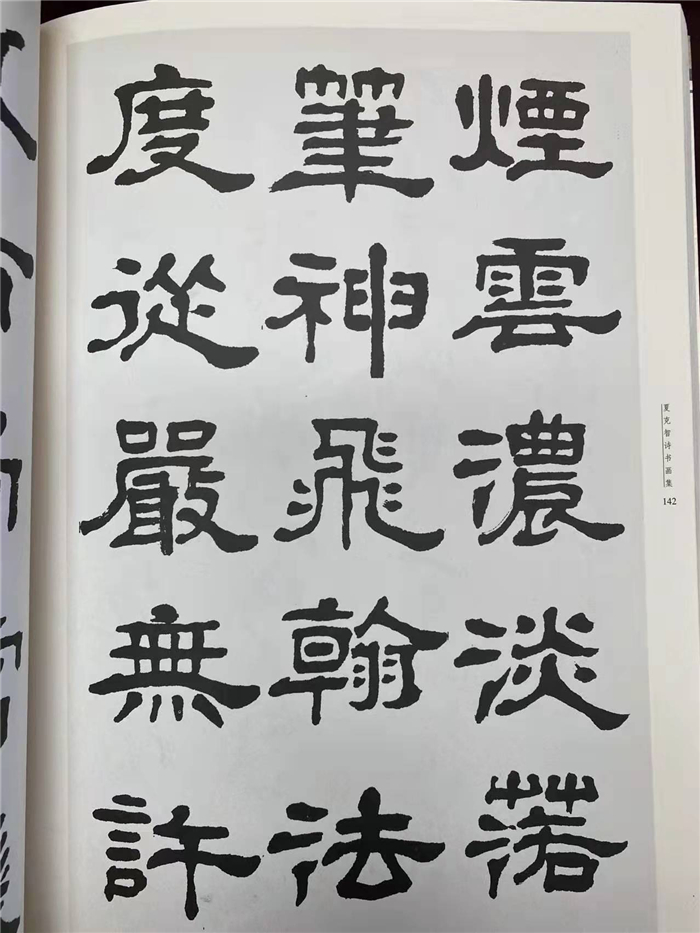 煙雲濃淡落
筆神飛翰法
度從嚴無許
夏克智诗书画集
142